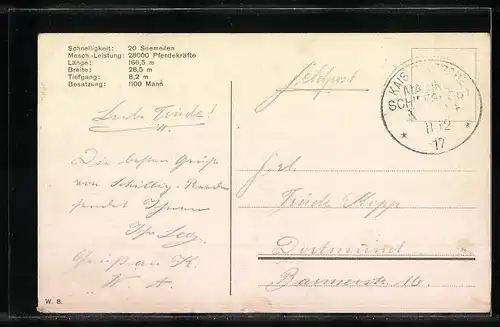 Schnelligkeit: 20 Seemeilen
Masch.-Leistung: 28000 Pferdekräfte
Länge: 166,5 m
Breite: 28,5 m
Tiefgang: 8,2 m
Besatzung: 1100 Mann
Feldpost
KAIS.
MARINE
SCHIFFSPOST
* 11.12 *
17
Liebe Trude!
Die besten Grüße
von Schillig-Reede
sendet Ihnen
Gruß an K.
W. A.
Frl.
Trude Kopp
Dortmund
Barmerstr. 16.
W. B.